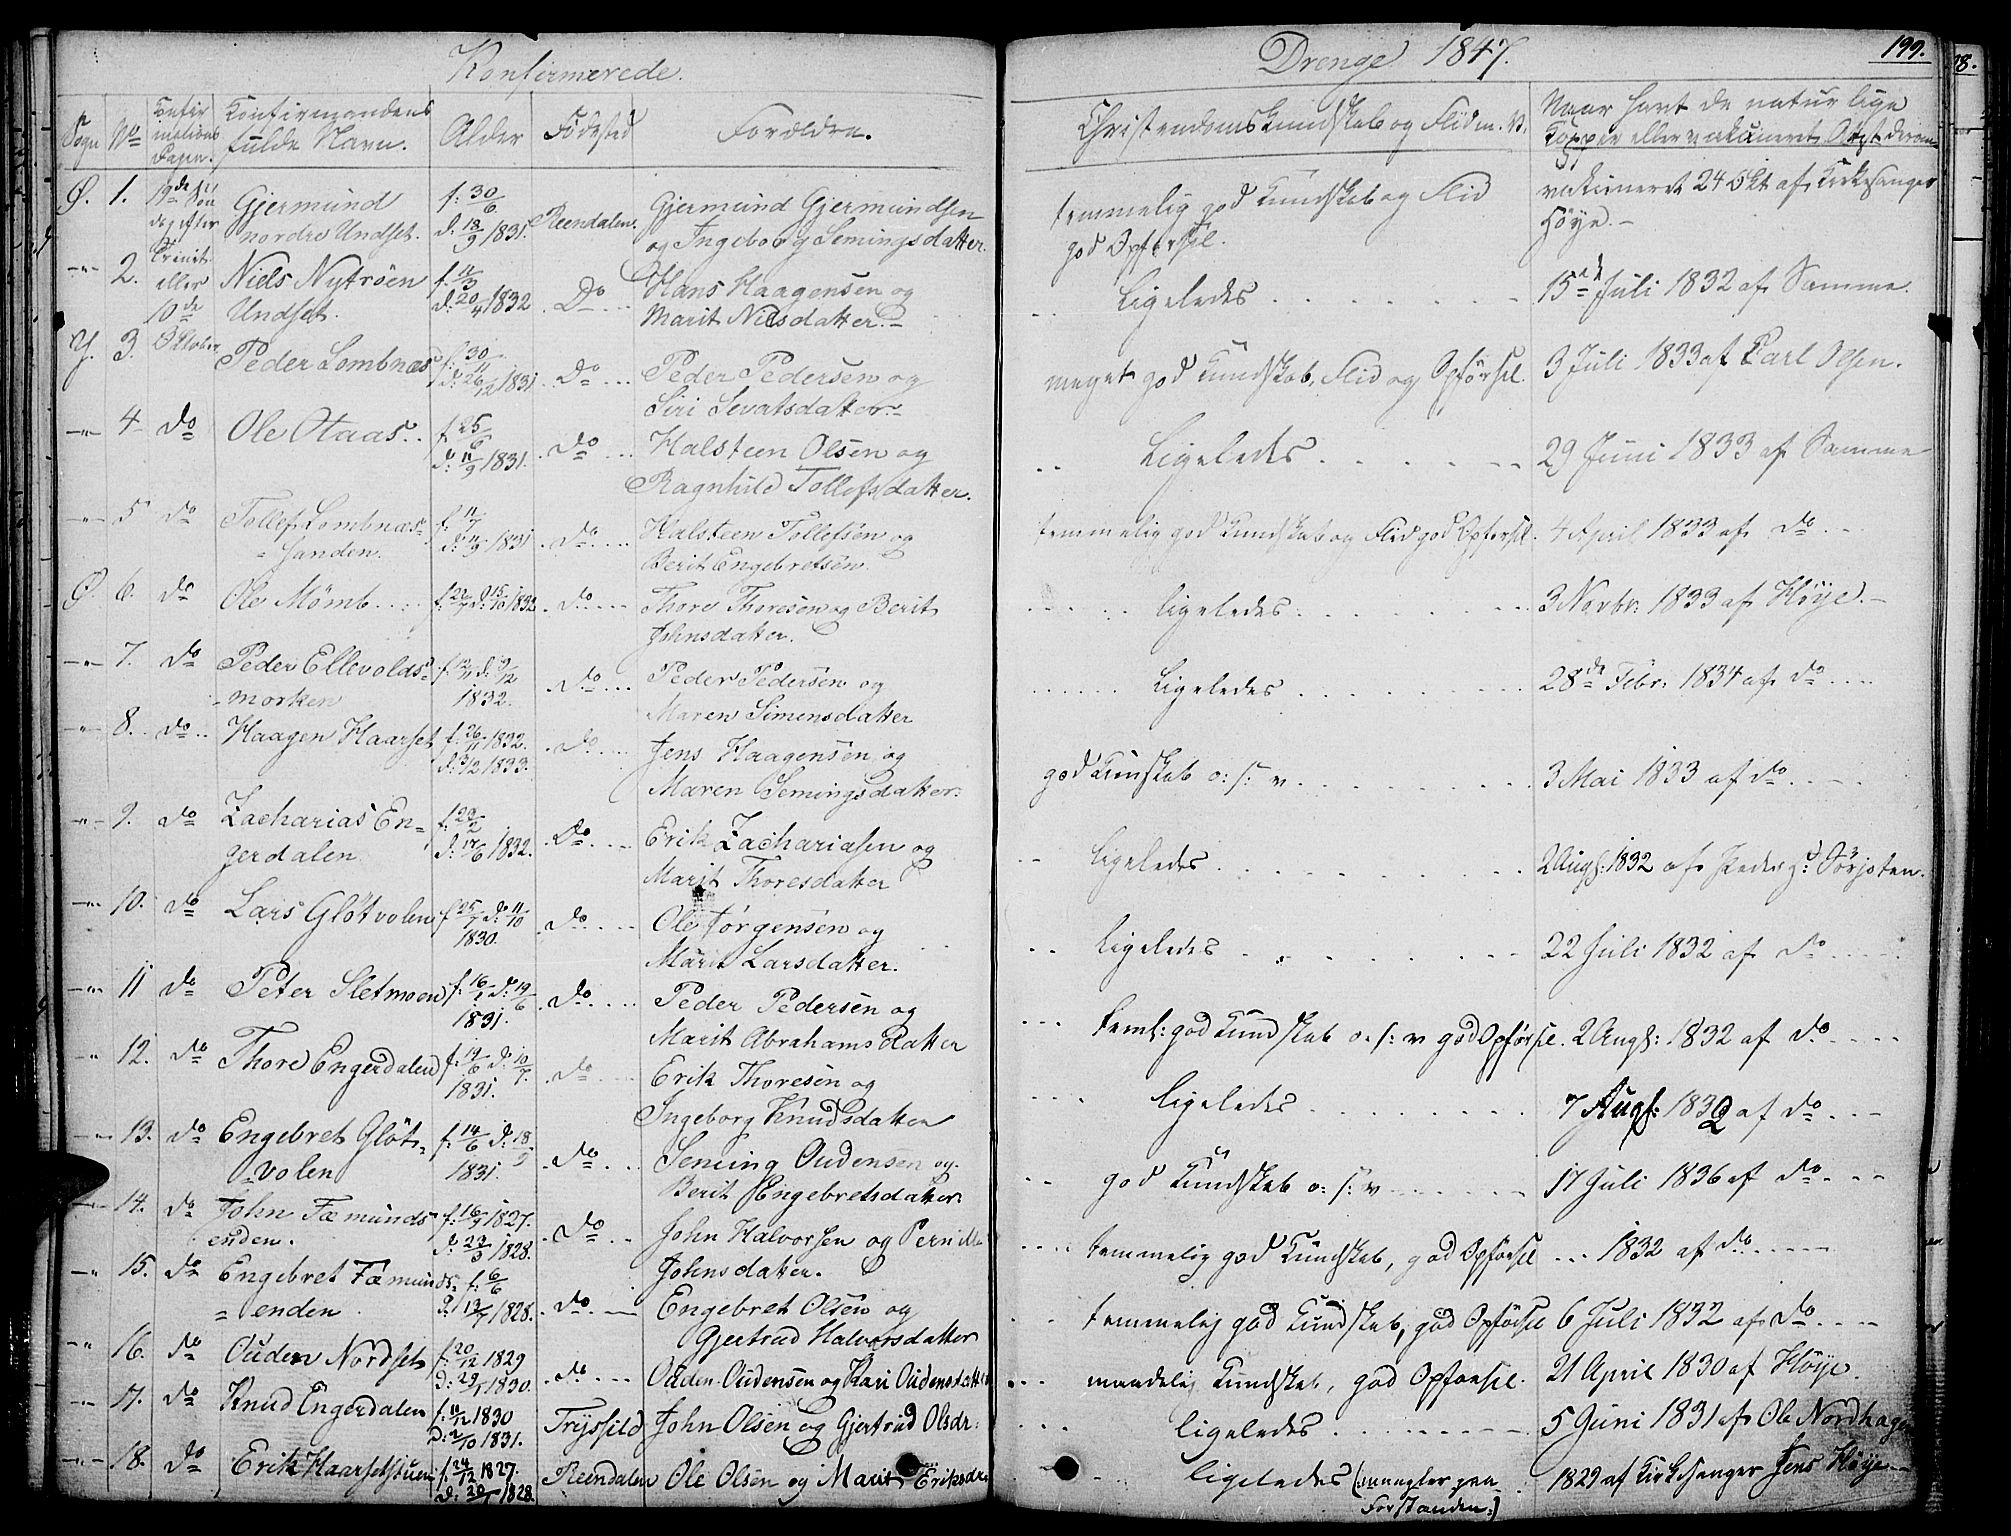 Konfirmerede.
Drenge 1847.
199.
Sogn No Konfirmations Dagen. Konfirmandens fulde Navn. Alder Födested Forældre. Christendomskundskab og Flid m. V. Naar havt de naturlige Kopper eller vakcineret, Attest derom
Ö. 1. 19de Sön dag efter Trinit. eller 10de Oktober Gjermund nordre Undset. f: 30/6 d: 18/9 1831. Reendalen. Gjermund Gjermundsen og Ingeborg Semingsdatter. temmelig god Kundskab og Flid god Opförsel. vakcineret 24 Okt af Kirkesanger Höye.-
-"- 2. Niels Nytröen Undset. f. 11/3 d: 20/4 1832 Do Hans Haagensen og Marit Nielsdatter.- Ligeledes 15de Juli 1832 af Samme.
Y. 3. Peder Lombnæs f: 30/11 d: 26/12 1831 Do Peder Pedersen og Siri Sevatsdatter.- meget god Kundskab, Flid og Opförsel. 3 Juli 1833 af Carl Olsen.
-"- 4 do Ole Otaas. f. 25/6 d: 11/9 1831. do Halsteen Olsen og Ragnhild Tollefsdatter. Ligeledes 29 Juni 1833 af Samme
-"- 5 do Tollef Lombnæs= sanden. f: 11/7 d: 11/9 1831 do Halsteen Tollefsen og Berit Engebretsen. temmelig god Kundskab og Flid god Opförsel. 4 April 1833 af do
Ö. 6. do Ole Mömb f: 22/7 d: 15/10 1832 do Thore Thoresen og Berit Johnsdatter. ligeledes 3 Novbr. 1833 af Höye.-
-"- 7. do Peder Ellevolds= morken f: 12/11 d: 9/12 1832. do Peder Pedersen og Maren Simensdatter Ligeledes 28de Febr. 1834 af do
-"- 8. do Haagen Haarset f: 26/11 1832. d: 3/2 1833. do Jens Haagensen og Maren Semingsdatter. god Kundskab o: s: v. 3 Mai 1833 af do
-"- 9. do Zacharias En= gerdalen f: 29/2 d: 17/6 1832. Do Erik Zachariasen og Marit Thoresdatter ligeledes 2 Augs: 1832 af Peder Sörjoten.
-"- 10. do Lars Glötvolen f: 25/7 d: 11/10 1830. do Ole Jörgensen og Marit Larsdatter. ligeledes 22 Juli 1832 af do
-"- 11 do Peter Sletmoen f: 16/1 d: 19/6 1831. do Peder Pedersen og Marit Abrahamsdatter teml: god Kundskab o. s: v god Opförsel. 2 Augs: 1832 af do
-"- 12. do Thore Engerdalen f: 14/6 d: 10/7. 1831. do Erik Thoresen og Ingeborg Knudsdatter ligeledes 7 Augs: 1832 af do
-"- 13. do Engebret Glöt= volen f: 14/6 d: 18/9 1831. do Seming Oudensen og Berit Engebretsdatter god Kundskab o: s: v 17 Juli 1836 af do
-"- 14. do John Fæmunds= enden. f: 16/9 1827. d: 23/3 1828. do John Halvorsen og Pernille Johnsdatter. temmelig god Kundskab, god Opförsel 1832 af do
-"- 15. do Engebret Fæmunds= enden f: 6/6 d: 13/7 1828. do Engebret Olsen og Gjertrud Halvorsdatter temmelig god Kundskab, god Opförsel 6 Juli 1832 af do
-"- 16. do Ouden Nordset f: 20/12 1829 d: 29/1 1830. do Ouden Oudensen og Kari Oudensdatter maadelig Kundskab, god Opförsel. 21 April 1830 af Höye.
-"- 17. do Knud Engerdalen f: 11/12 1830 d: 2/10 1831. Tryssild John Olsen og Gjertrud Olsdr: ligeledes 5 Juni 1831 af Ole Nordhagen
-"- 18. do Erik Haarsetstuen f: 24/12 1827. d: 20/1 1828. Reendalen Ole Olsen og Marit Eriksdr: ligeledes (: mangler paa Forstanden:) 1829 af Kirkesanger Jens Höye